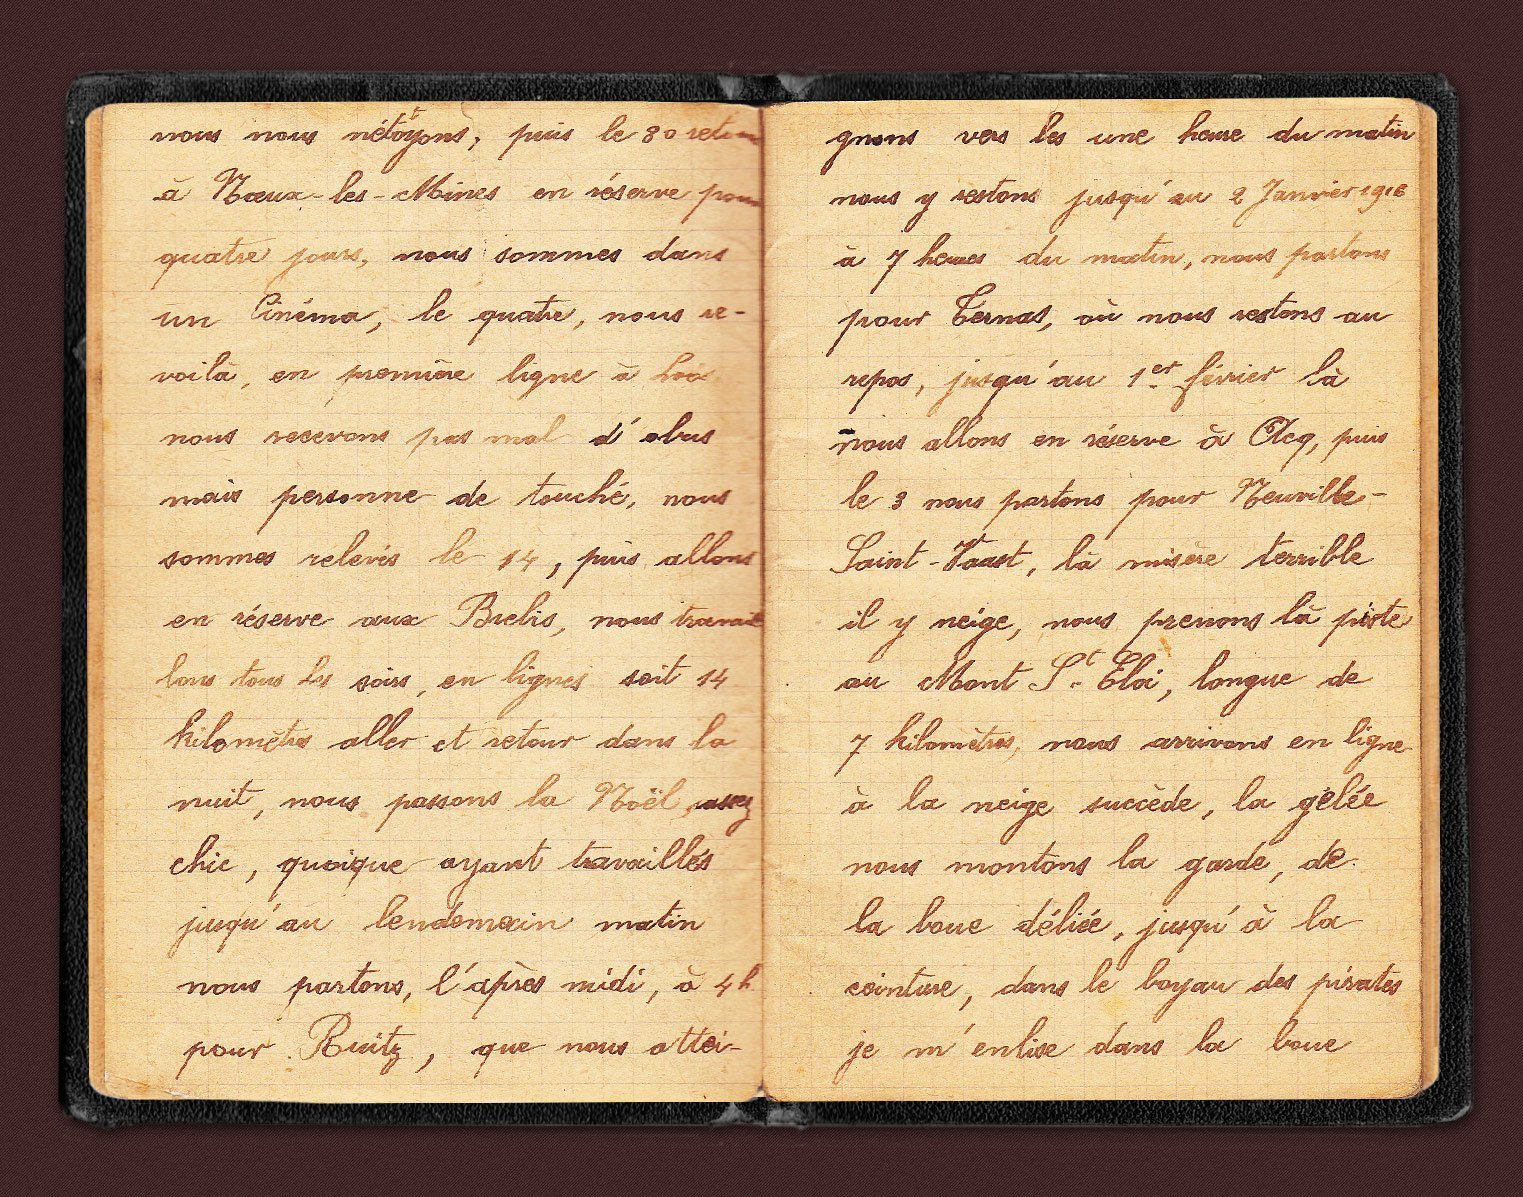 nous nous nétoyons, puis le 30 retour
à Nœux-les-Mines en réserve pour
quatre jours, nous sommes dans
un Cinéma, le quatre, nous re-
voilà, en première ligne à Loos
nous recevons pas mal d'obus
mais personne de touché, nous
sommes relevés le 14, puis allons
en réserve aux Brebis, nous travail
lons tous les soirs, en lignes soit 14
kilomètres aller et retour dans la
nuit, nous passons la Noël, assez
chic, quoique ayant travaillés
jusqu'au lendemain matin
nous partons, l'après midi, à 4h
pour Ruitz, que nous attei-
gnons vers les une heure du matin
nous y restons jusqu'au 2 Janvier 1916
à 7 heures du matin, nous partons
pour Ternas, où nous restons au
repos, jusqu'au 1er février là
nous allons en réserve à Acq, puis
le 3 nous partons pour Neuville-
Saint-Vaast, là misère terrible
il y neige, nous prenons la piste
au Mont St. Eloi, longue de
7 kilomètres, nous arrivons en ligne
à la neige succède, la gelée
nous montons la garde, de
la boue déliée, jusqu'à la
ceinture, dans le boyau des pirates
je m'enlise dans la boue